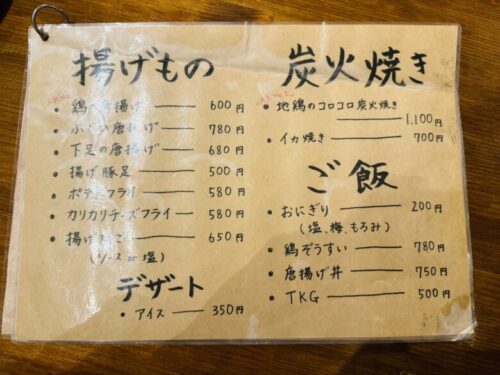 揚げもの
• 鶏の唐揚げ —— 600円
• ふぐの唐揚げ —— 780円
• 下足の唐揚げ —— 680円
• 揚げ豚足 —— 500円
• ポテトフライ —— 580円
• カリカリチーズフライ —— 580円
• 揚げ —— 650円
(ソース or 塩)
デザート
• アイス —— 350円
炭火焼き
• 地鶏のコロコロ炭火焼き
—— 1,100円
• イカ焼き —— 700円
ご飯
• おにぎり —— 200円
(塩、梅、もろみ)
• 鶏ぞうすい —— 780円
• 唐揚げ丼 —— 750円
• TKG —— 500円